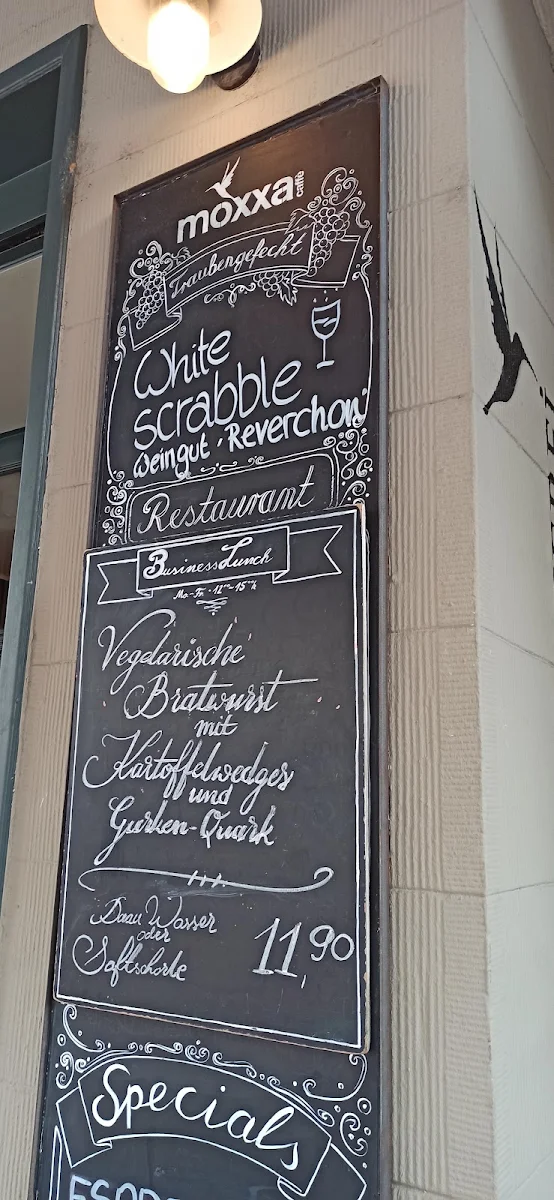 moxxa caffè
Traubengefecht
White
scrabble
Weingut 'Reverchon'
Restaurant
Business Lunch
Mo-Fr • 12⁰⁰-15⁰⁰h
Vegetarische
Bratwurst
mit
Kartoffelwedges
und
Gurken-Quark
Dazu Wasser
oder
Saftschorle
11,90
Specials